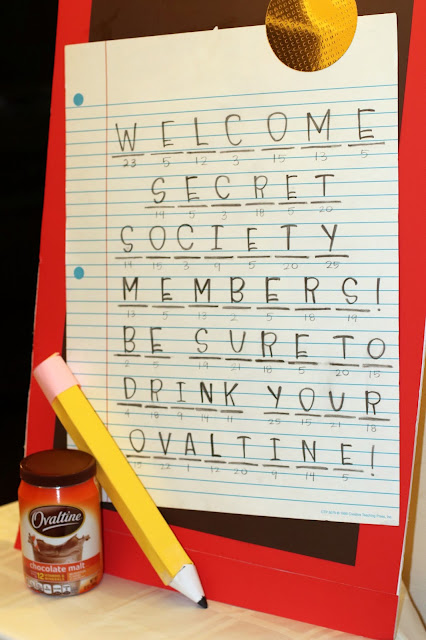 WELCOME
23 5 12 3 15 13 5
SECRET
19 5 3 18 5 20
SOCIETY
19 15 3 9 5 20 25
MEMBERS!
13 5 13 2 5 18 19
BE SURE TO
2 5 19 21 18 5 20 15
DRINK YOUR
4 18 9 14 11 25 15 21 18
OVALTINE!
15 22 1 12 20 9 14 5
Ovaltine
chocolate malt
12